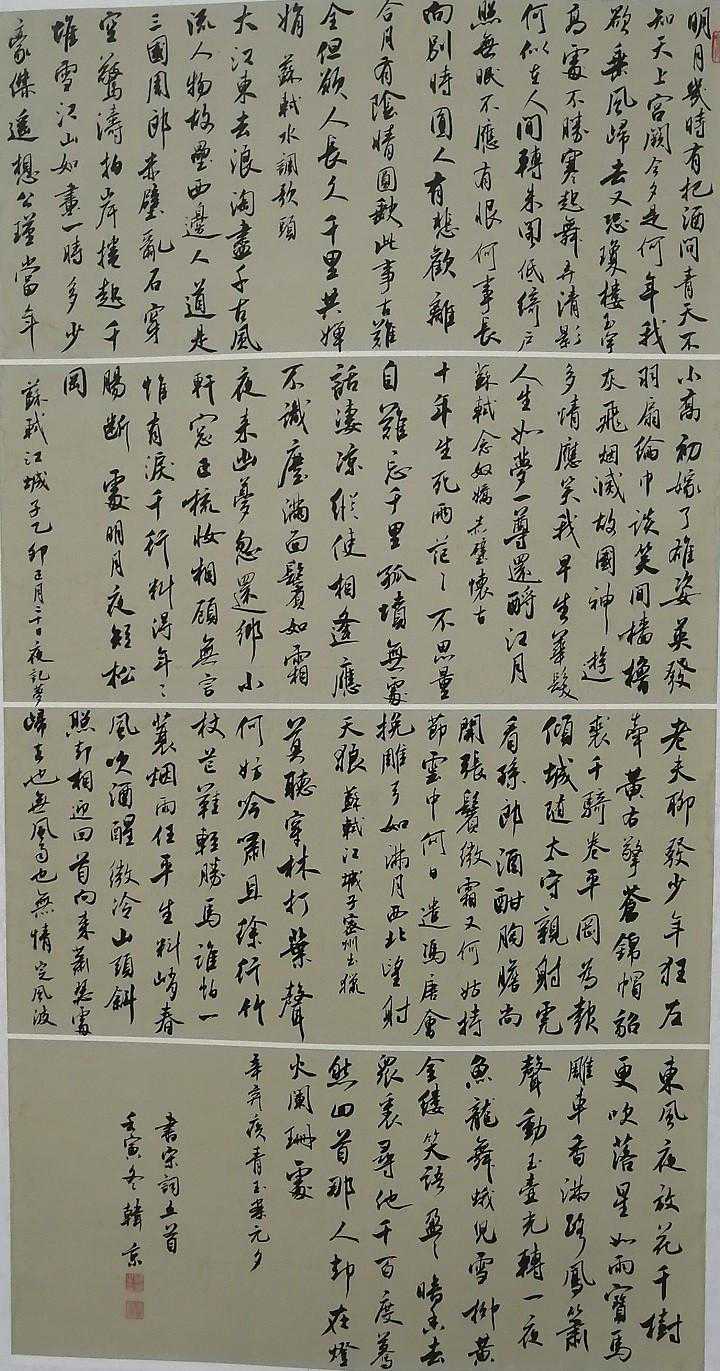 明月幾時有把酒問青天不
知天上宫闕今夕是何年我
欲乘風歸去又恐瓊樓玉宇
高處不勝寒起舞弄清影
何似在人間轉朱閣低綺户
照無眠不應有恨何事長
向别時圓人有悲歡離
合月有陰晴圓缺此事古難
全但欲人長久千里共嬋
娟 蘇軾水調歌頭
大江東去浪淘盡千古風
流人物故壘西邊人道是
三國周郎赤壁亂石穿
空驚濤拍岸捲起千
堆雪江山如畫一時多少
豪傑遥想公瑾當年
小喬初嫁了雄姿英發
羽扇綸巾談笑間檣櫓
灰飛烟滅故國神遊
多情應笑我早生華髮
人生如夢一尊還酹江月
蘇軾念奴嬌赤壁懷古
十年生死兩茫〻不思量
自難忘千里孤墳無處
話凄凉縱使相逢應
不識塵滿面鬢如霜
夜来幽夢忽還鄉小
軒窗正梳妝相顧無言
惟有淚千行料得年〻
腸斷處明月夜短松
岡
蘇軾江城子乙卯正月二十日夜記夢
老夫聊發少年狂左
牽黄右擎蒼錦帽貂
裘千騎卷平岡為報
傾城随太守親射虎
看孫郎酒酣胸膽尚
開張鬢微霜又何妨持
節雲中何日遣馮唐會
挽雕弓如滿月西北望射
天狼 蘇軾江城子密州出獵
莫聽穿林打葉聲
何妨吟嘯且徐行竹
杖芒鞋輕勝馬誰怕一
蓑烟雨任平生料峭春
風吹酒醒微冷山頭斜
照却相迎回首向来蕭瑟處
歸去也無風雨也無情定風波
東風夜放花千樹
更吹落星如雨寶馬
雕車香滿路鳳簫
聲動玉壺光轉一夜
魚龍舞蛾兒雪柳黄
金縷笑語盈〻暗香去
衆裏尋他千百度驀
然回首那人却在燈
火闌珊處
辛弃疾青玉案元夕
書宋詞五首
壬寅冬韓京